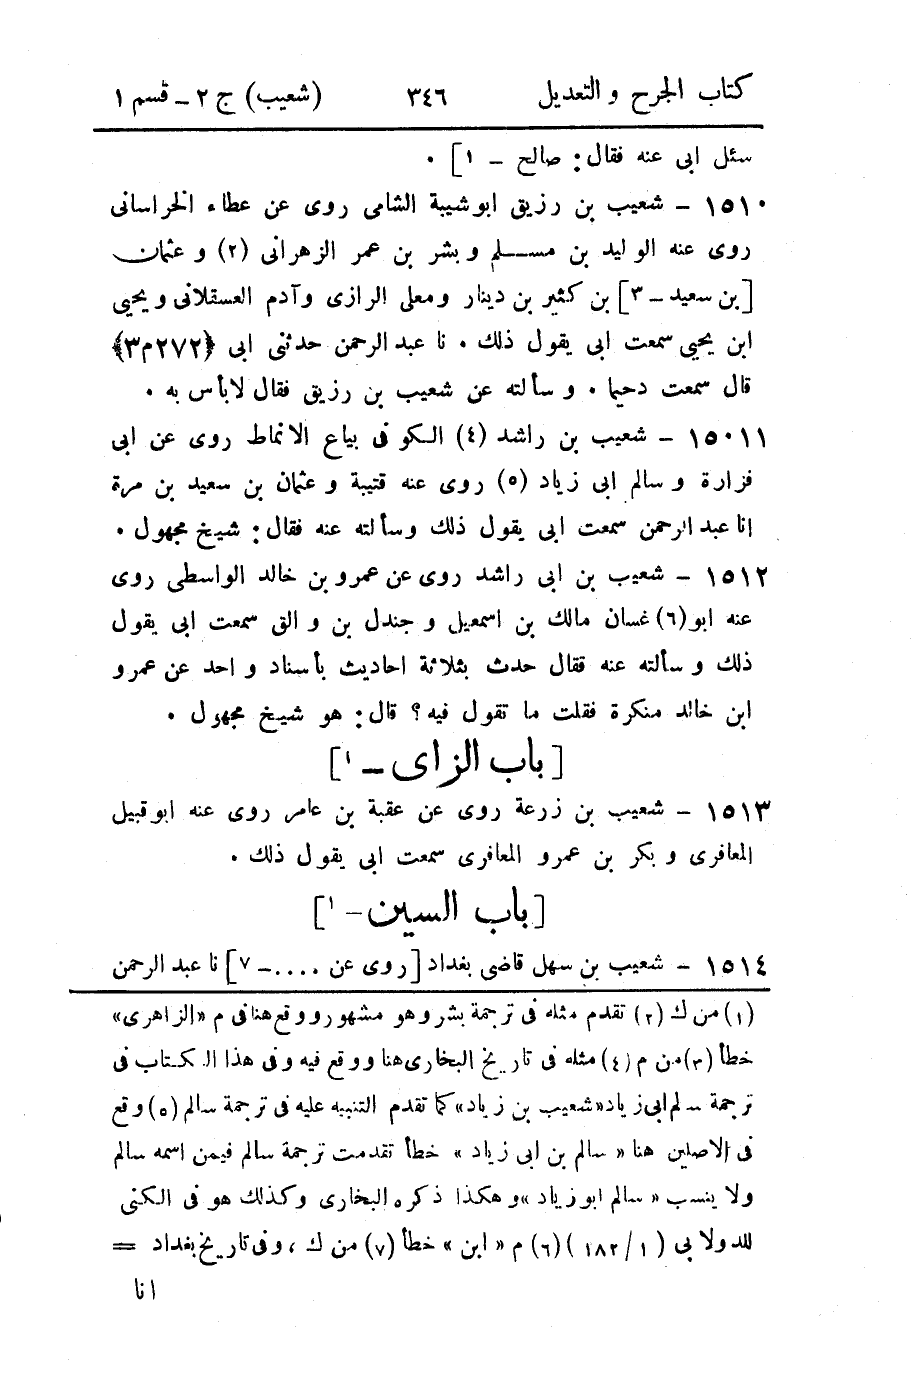 كتاب الجرح والتعديل ٣٤٦ (شعيب) ج ٢ - قسم ١
سئل ابى عنه فقال: صالح - ١] .
١٥١٠ - شعيب بن رزيق ابوشيبة الشامى روى عن عطاء الخراسانى
روى عنه الوليد بن مسلم وبشر بن عمر الزهرانى (٢) و عثمان
[بن سعيد - ٣] بن كثير بن دينار ومعلى الرازى وآدم العسقلانى ويحيى
ابن يحيى سمعت ابى يقول ذلك . نا عبد الرحمن حدثنى ابى ﴿٢٧٢م٣﴾
قال سمعت دحيما . وسألته عن شعيب بن رزيق فقال لابأس به .
١٥٠١١ - شعيب بن راشد (٤) الكوفى بياع الانماط روى عن ابى
فزارة وسالم ابى زياد (٥) روى عنه قتيبة وعثمان بن سعيد بن مرة
انا عبد الرحمن سمعت ابى يقول ذلك وسألته عنه فقال: شيخ مجهول .
١٥١٢ - شعيب بن ابى راشد روى عن عمرو بن خالد الواسطى روى
عنه ابو(٦) غسان مالك بن اسمعيل وجندل بن والق سمعت ابى يقول
ذلك وسألته عنه فقال حدث بثلاثة احاديث بأسناد واحد عن عمرو
ابن خالد منكرة فقلت ما تقول فيه؟ قال: هو شيخ مجهول .
[باب الزاى - ١]
١٥١٣ - شعيب بن زرعة روى عن عقبة بن عامر روى عنه ابوقبيل
المعافرى و بكر بن عمرو المعافرى سمعت ابى يقول ذلك .
[باب السين - ١]
١٥١٤ - شعيب بن سهل قاضى بغداد [روى عن .... - ٧] نا عبد الرحمن
(١) من ك (٢) تقدم مثله فى ترجمة بشر وهو مشهور ووقع هنا فى م «الزاهرى»
خطأ (٣) من م (٤) مثله فى تاريخ البخارى هنا ووقع فيه وفى هذا الكتاب فى
ترجمة سالم ابى زياد «شعيب بن زياد» كما تقدم التنبيه عليه فى ترجمة سالم (٥) وقع
فى الاصلين هنا « سالم بن ابى زياد » خطأ تقدمت ترجمة سالم فيمن اسمه سالم
ولا ينسب « سالم ابو زياد » وهكذا ذكره البخارى وكذلك هو فى الكنى
للدولابى (١/ ١٨٢) (٦) م « ابن » خطأ (٧) من ك ، وفى تاريخ بغداد =
انا